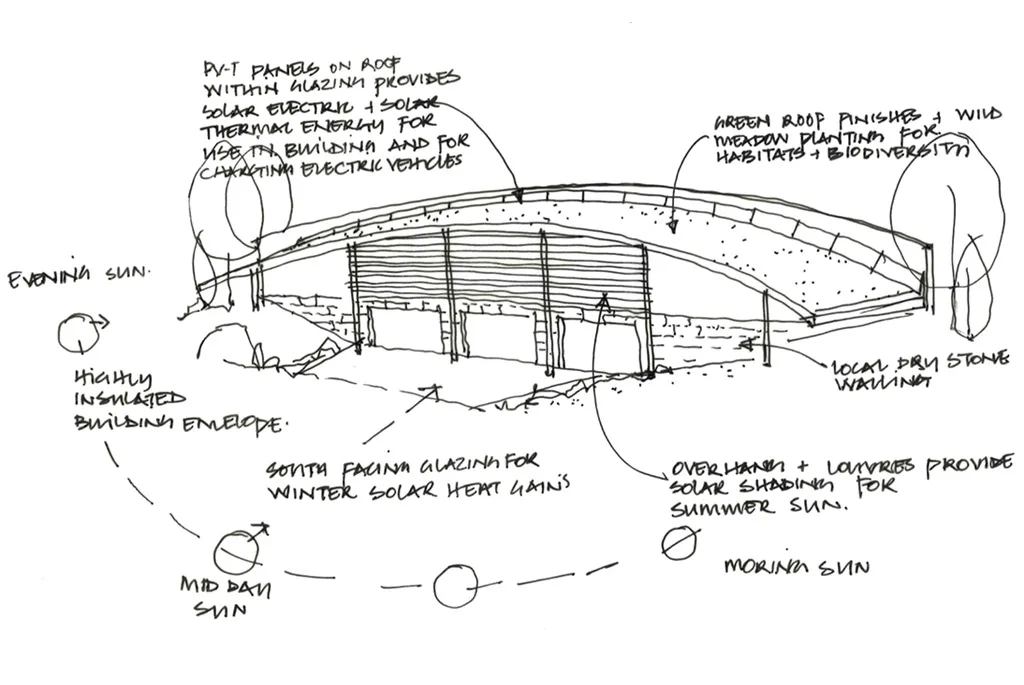 PV-T PANELS ON ROOF
WITHIN GLAZING PROVIDES
SOLAR ELECTRIC + SOLAR
THERMAL ENERGY FOR
USE IN BUILDING AND FOR
CHARGING ELECTRIC VEHICLES
GREEN ROOF FINISHES + WILD
MEADOW PLANTING FOR
HABITATS + BIODIVERSITY
EVENING SUN.
HIGHLY
INSULATED
BUILDING ENVELOPE.
LOCAL DRY STONE
WALLING
SOUTH FACING GLAZING FOR
WINTER SOLAR HEAT GAINS
OVERHANG + LOUVRES PROVIDE
SOLAR SHADING FOR
SUMMER SUN.
MID DAY
SUN
MORING SUN